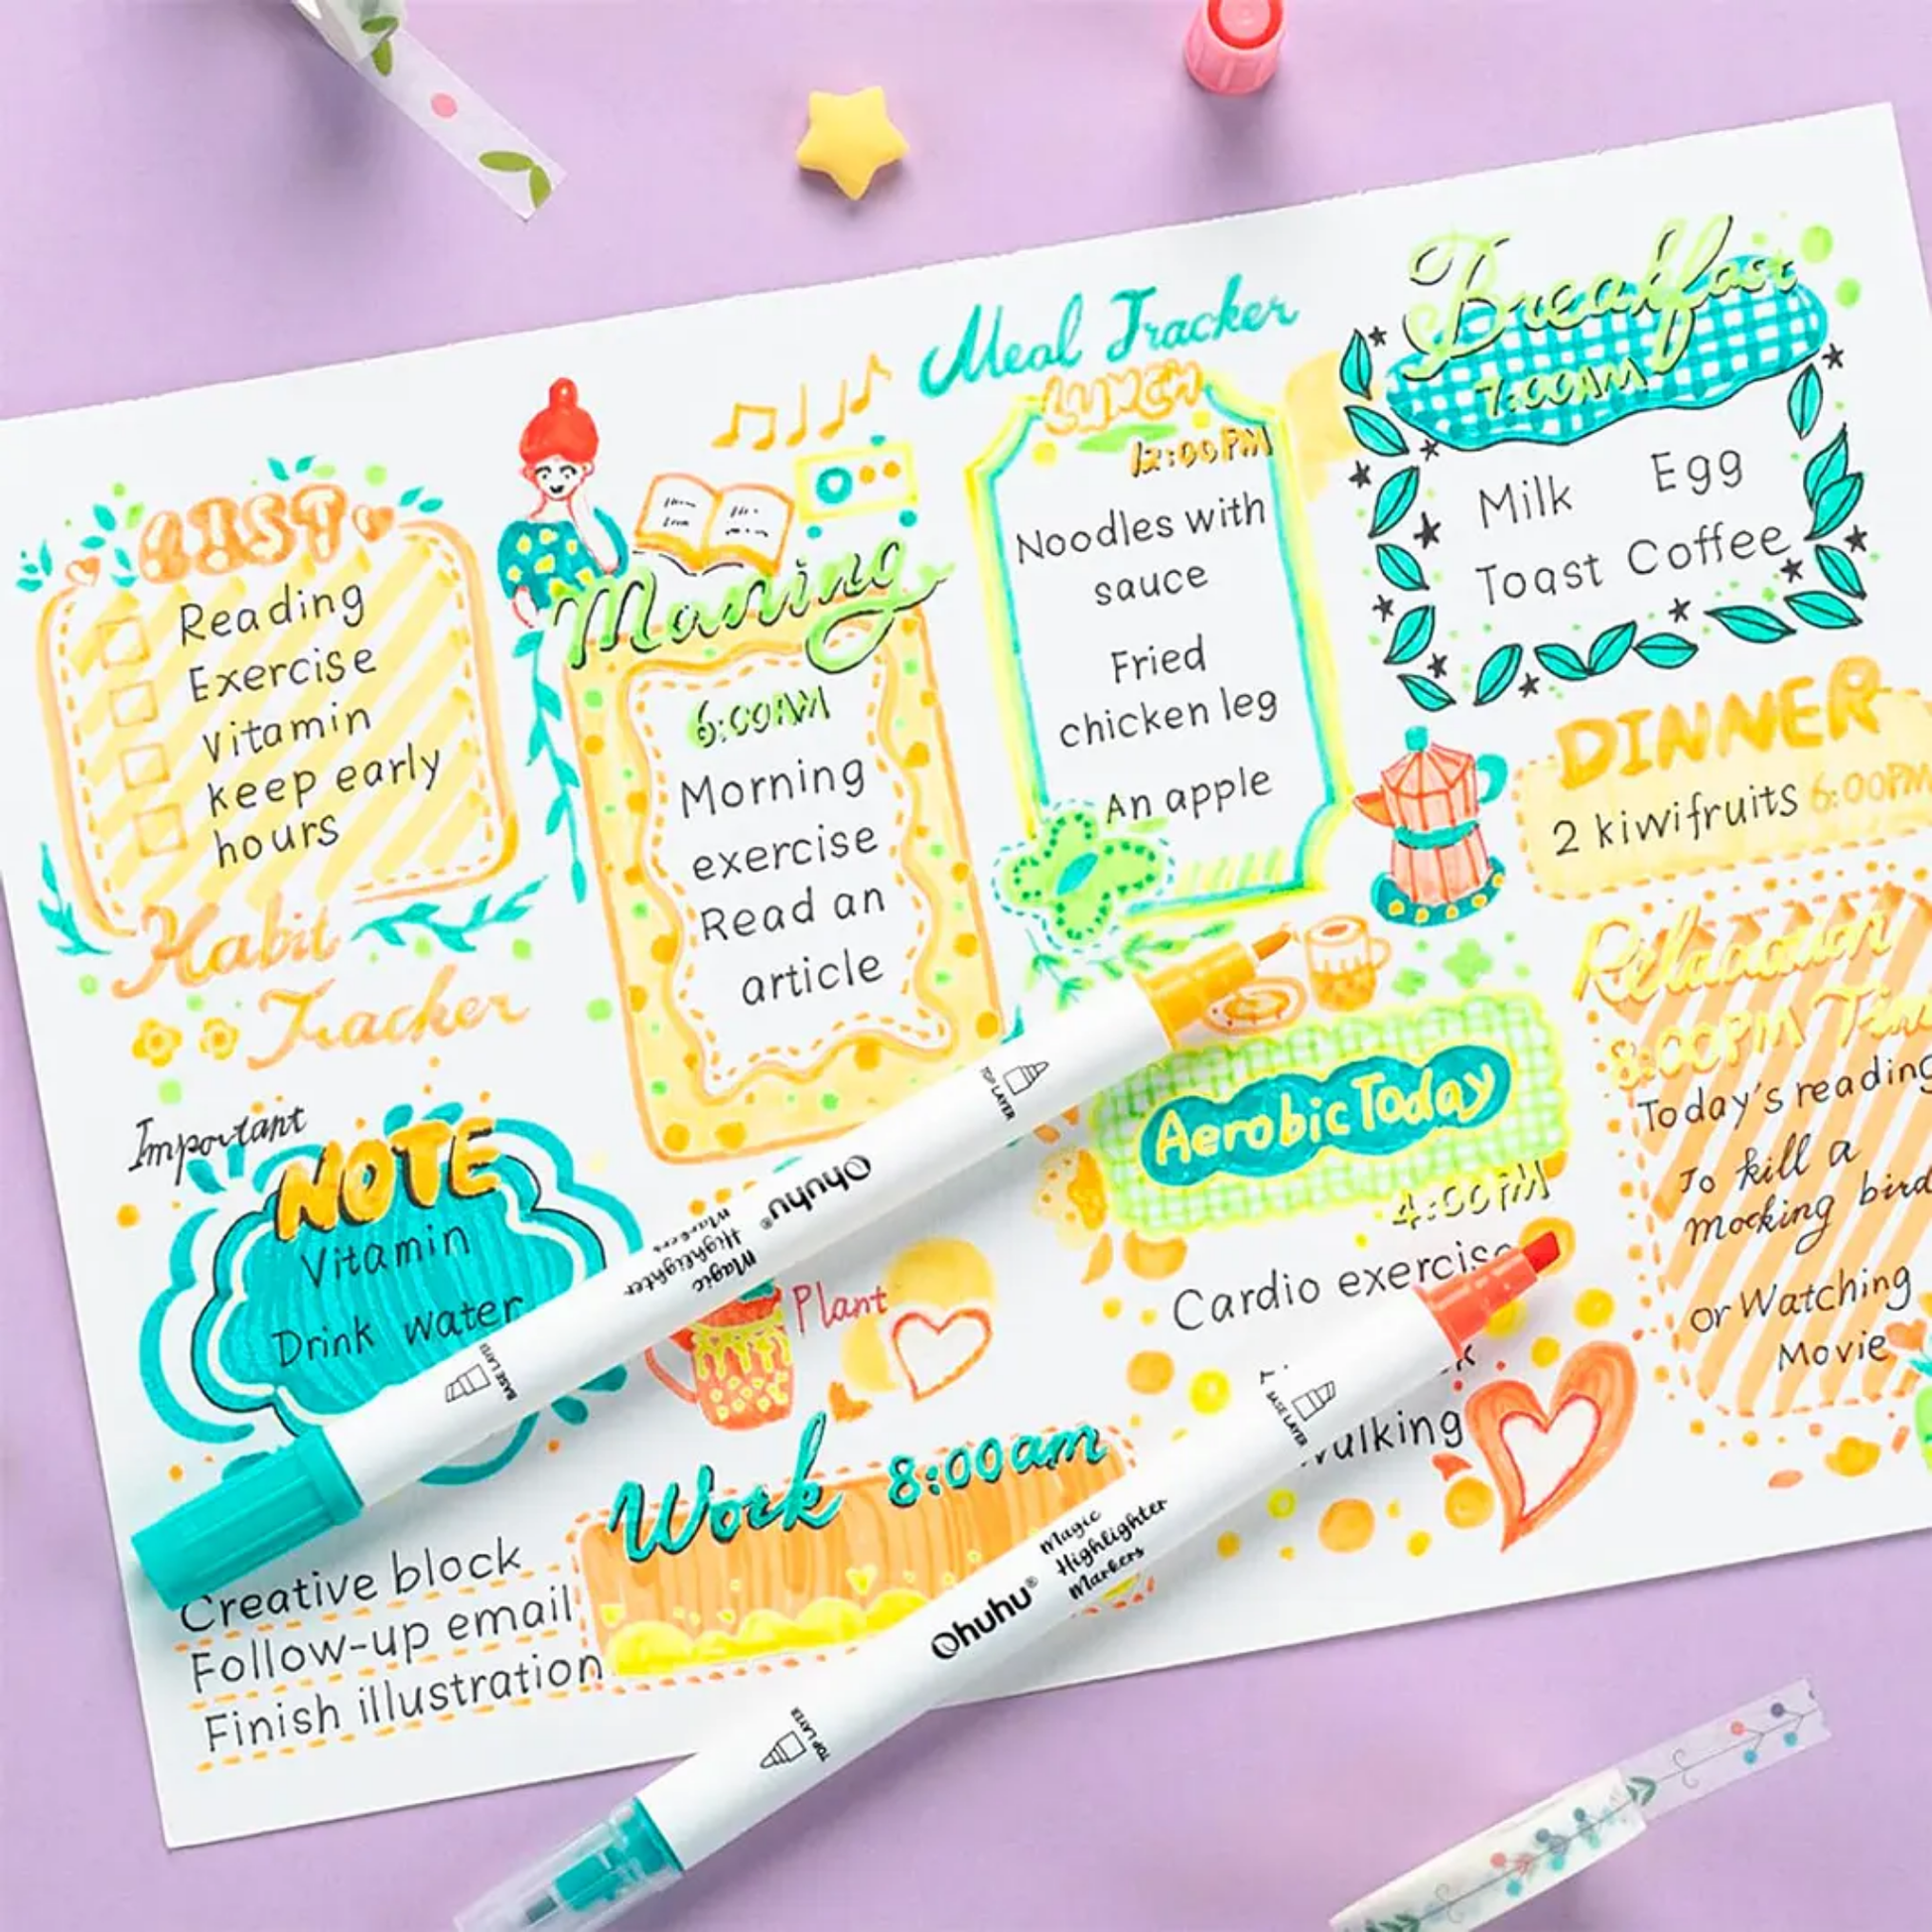 Meal Tracker
Breakfast
7:00AM
Milk Egg
Toast Coffee
LUNCH
12:00PM
Noodles with
sauce
Fried
chicken leg
An apple
DINNER
2 kiwifruits 6:00PM
LIST
Reading
Exercise
Vitamin
keep early
hours
Habit
Tracker
Morning
6:00AM
Morning
exercise
Read an
article
Important
NOTE
Vitamin
Drink water
Plant
Aerobic Today
4:00PM
Cardio exercise
walking
8:00PM
Today's reading
To kill a
mocking bird
or Watching
Movie
Work 8:00am
Creative block
Follow-up email
Finish illustration
TOP LAYER
Ohuhu®
Magic
Highlighter
Markers
BASE LAYER
BASE LAYER
Magic
Highlighter
Markers
Ohuhu®
TOP LAYER